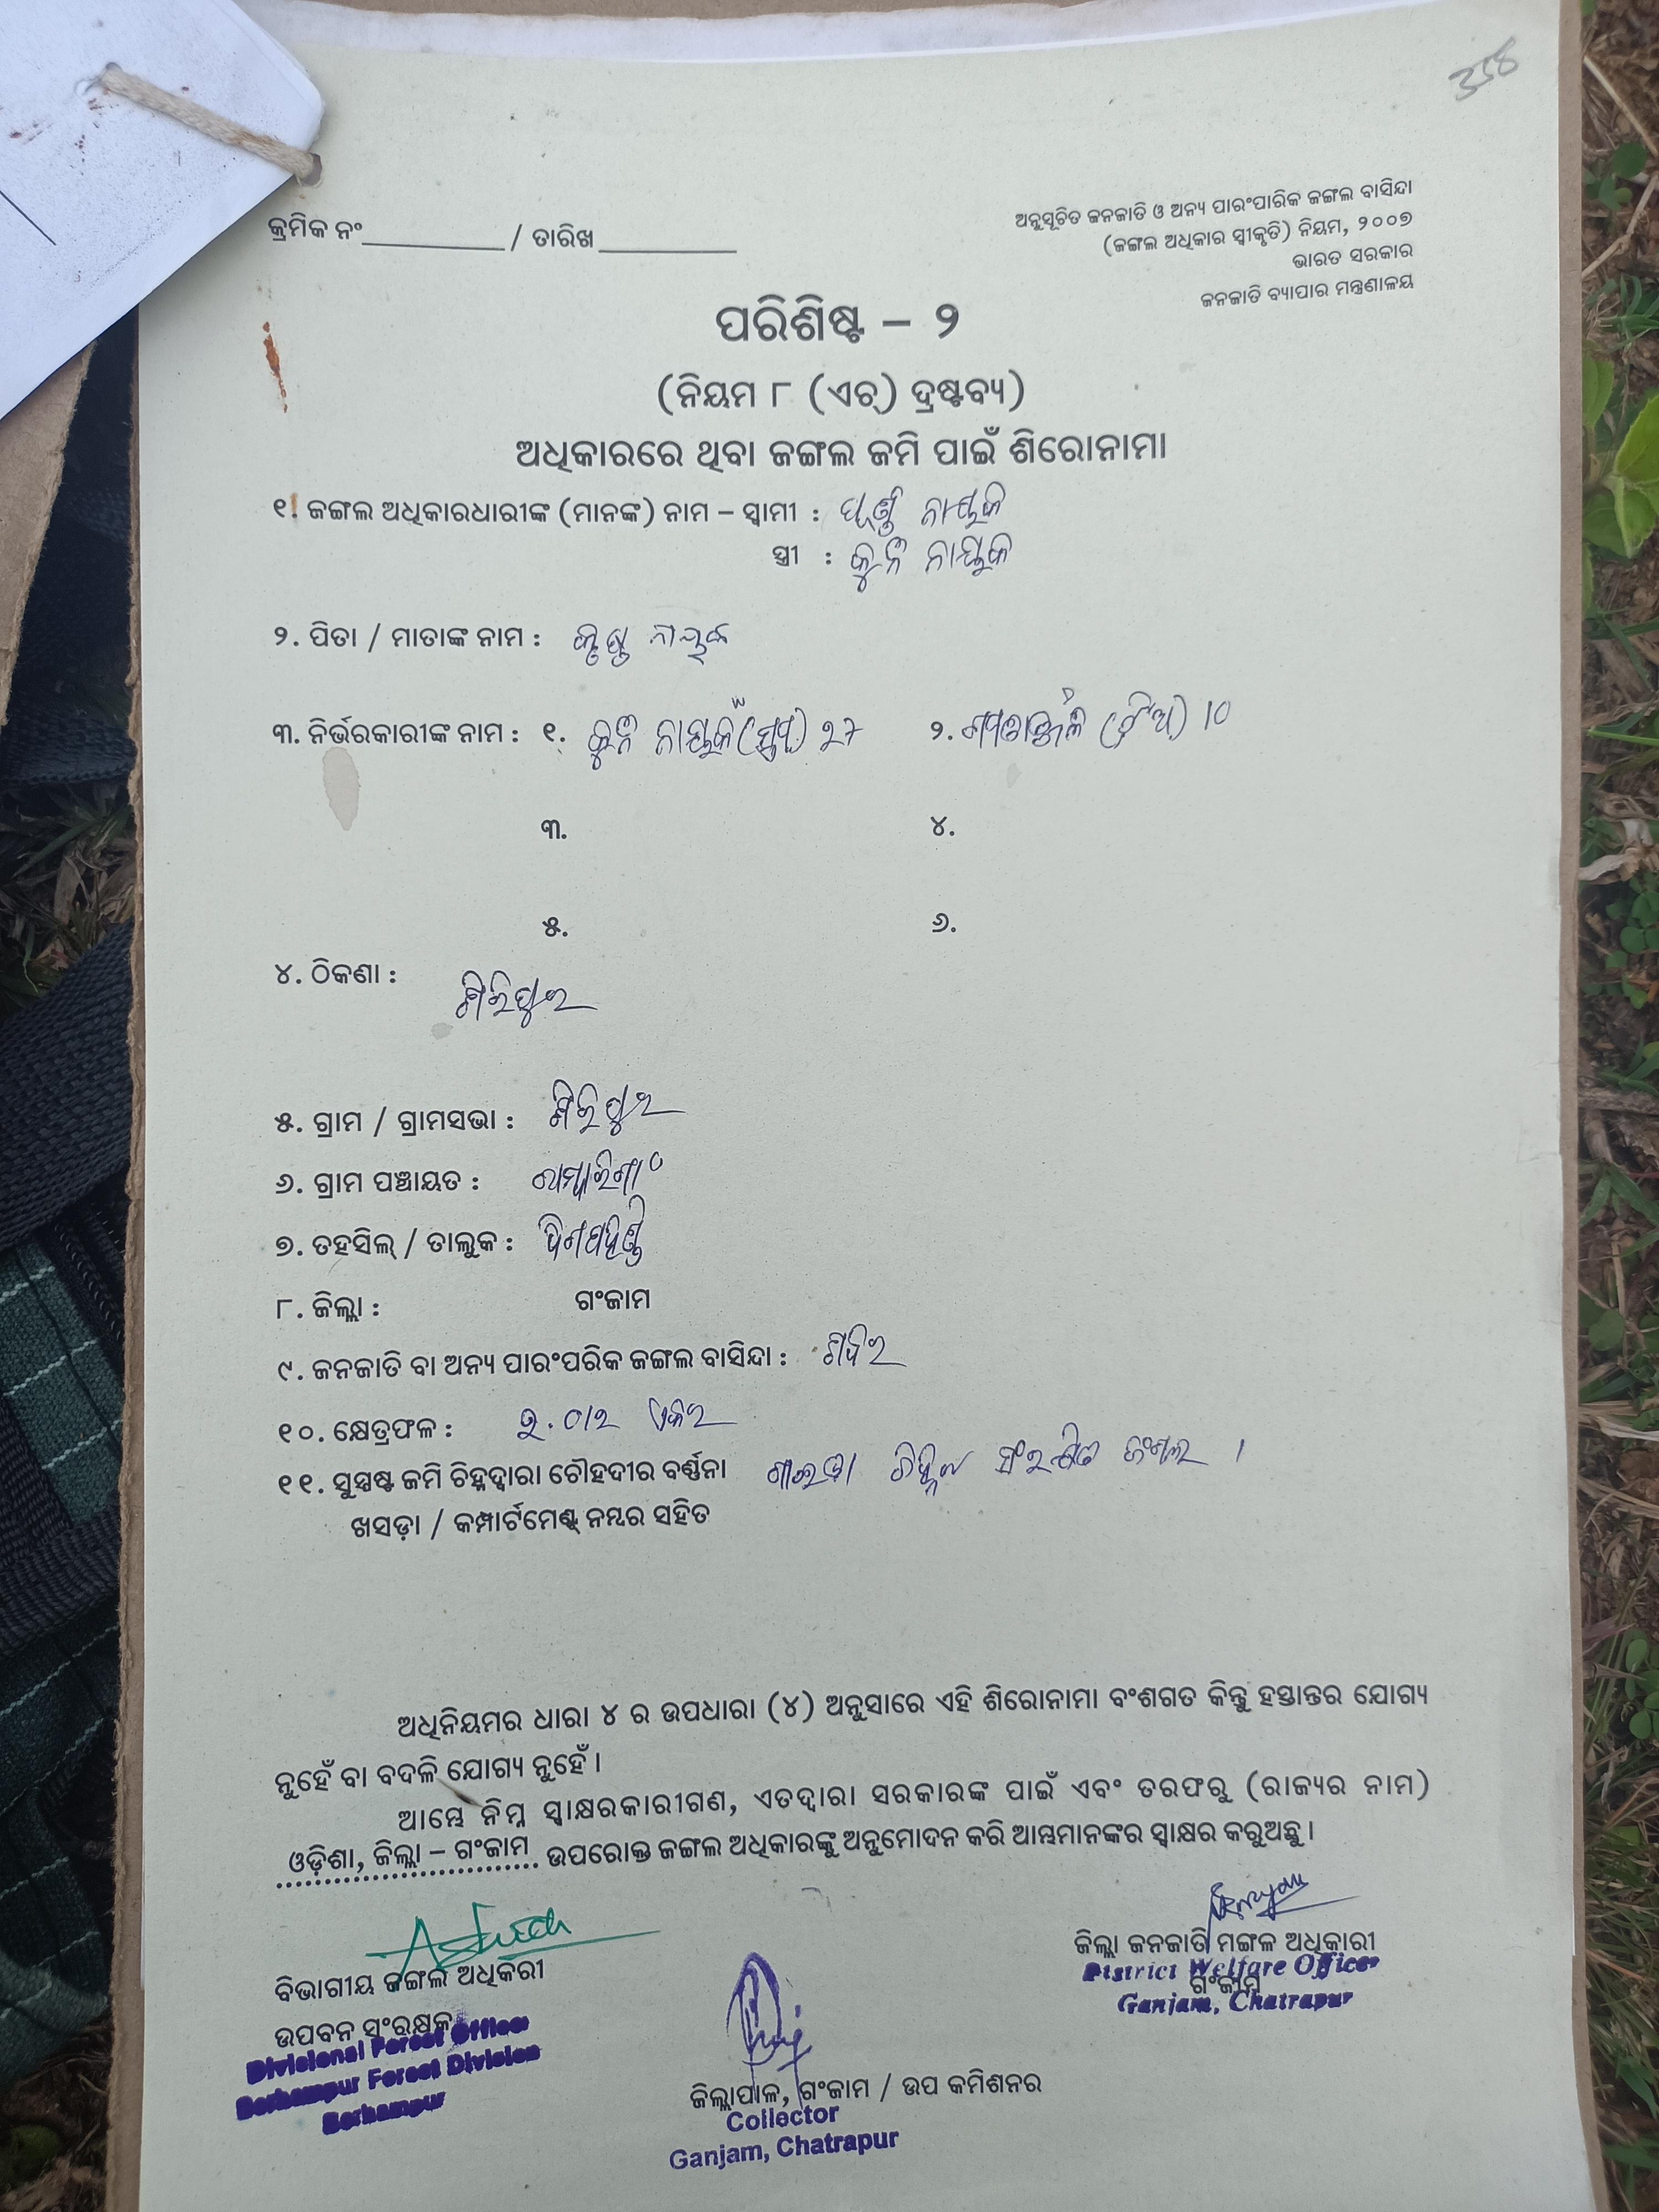 358
କ୍ରମିକ ନଂ__________ / ତାରିଖ__________
ଅନୁସୂଚିତ ଜନଜାତି ଓ ଅନ୍ୟ ପାରଂପାରିକ ଜଙ୍ଗଲ ବାସିନ୍ଦା
(ଜଙ୍ଗଲ ଅଧିକାର ସ୍ୱୀକୃତି) ନିୟମ, ୨୦୦୭
ଭାରତ ସରକାର
ଜନଜାତି ବ୍ୟାପାର ମନ୍ତ୍ରଣାଳୟ
ପରିଶିଷ୍ଟ – ୨
(ନିୟମ ୮ (ଏଚ୍) ଦ୍ରଷ୍ଟବ୍ୟ)
ଅଧିକାରରେ ଥିବା ଜଙ୍ଗଲ ଜମି ପାଇଁ ଶିରୋନାମା
୧. ଜଙ୍ଗଲ ଅଧିକାରଧାରୀଙ୍କ (ମାନଙ୍କ) ନାମ – ସ୍ୱାମୀ : ନାୟକ
ସ୍ତ୍ରୀ : କୁନି ନାୟକ
୨. ପିତା / ମାତାଙ୍କ ନାମ : କୃଷ୍ଣ ନାୟକ
୩. ନିର୍ଭରକାରୀଙ୍କ ନାମ : ୧. କୁନି ନାୟକ (ସ୍ତ୍ରୀ) ୨. (ଝିଅ) 10
୩. ୪.
୫. ୬.
୪. ଠିକଣା : ଶିରିପୁର
୫. ଗ୍ରାମ / ଗ୍ରାମସଭା : ଶିରିପୁର
୬. ଗ୍ରାମ ପଞ୍ଚାୟତ :
୭. ତହସିଲ୍ / ତାଲୁକ : ଦିଗପହଣ୍ଡି
୮. ଜିଲ୍ଲା : ଗଂଜାମ
୯. ଜନଜାତି ବା ଅନ୍ୟ ପାରଂପରିକ ଜଙ୍ଗଲ ବାସିନ୍ଦା :
୧୦. କ୍ଷେତ୍ରଫଳ : ଏକର
୧୧. ସୁସ୍ପଷ୍ଟ ଜମି ଚିହ୍ନଦ୍ୱାରା ଚୌହଦୀର ବର୍ଣ୍ଣନା ସଂରକ୍ଷିତ ଜଂଗଲ ।
ଖସଡ଼ା / କମ୍ପାର୍ଟମେଣ୍ଟ୍ ନମ୍ବର ସହିତ
ଅଧିନିୟମର ଧାରା ୪ ର ଉପଧାରା (୪) ଅନୁସାରେ ଏହି ଶିରୋନାମା ବଂଶଗତ କିନ୍ତୁ ହସ୍ତାନ୍ତର ଯୋଗ୍ୟ
ନୁହେଁ ବା ବଦଳି ଯୋଗ୍ୟ ନୁହେଁ ।
ଆମ୍ଭେ ନିମ୍ନ ସ୍ୱାକ୍ଷରକାରୀଗଣ, ଏତଦ୍ୱାରା ସରକାରଙ୍କ ପାଇଁ ଏବଂ ତରଫରୁ (ରାଜ୍ୟର ନାମ)
ଓଡ଼ିଶା, ଜିଲ୍ଲା – ଗଂଜାମ ଉପରୋକ୍ତ ଜଙ୍ଗଲ ଅଧିକାରଙ୍କୁ ଅନୁମୋଦନ କରି ଆମ୍ଭମାନଙ୍କର ସ୍ୱାକ୍ଷର କରୁଅଛୁ ।
ବିଭାଗୀୟ ଜଙ୍ଗଲ ଅଧିକାରୀ
ଉପବନ ସଂରକ୍ଷକ
Divisional Forest Officer
Berhampur Forest Division
Berhampur
ଜିଲ୍ଲା ଜନଜାତି ମଙ୍ଗଳ ଅଧିକାରୀ
ଗଂଜାମ
District Welfare Officer
Ganjam, Chatrapur
ଜିଲ୍ଲାପାଳ, ଗଂଜାମ / ଉପ କମିଶନର
Collector
Ganjam, Chatrapur